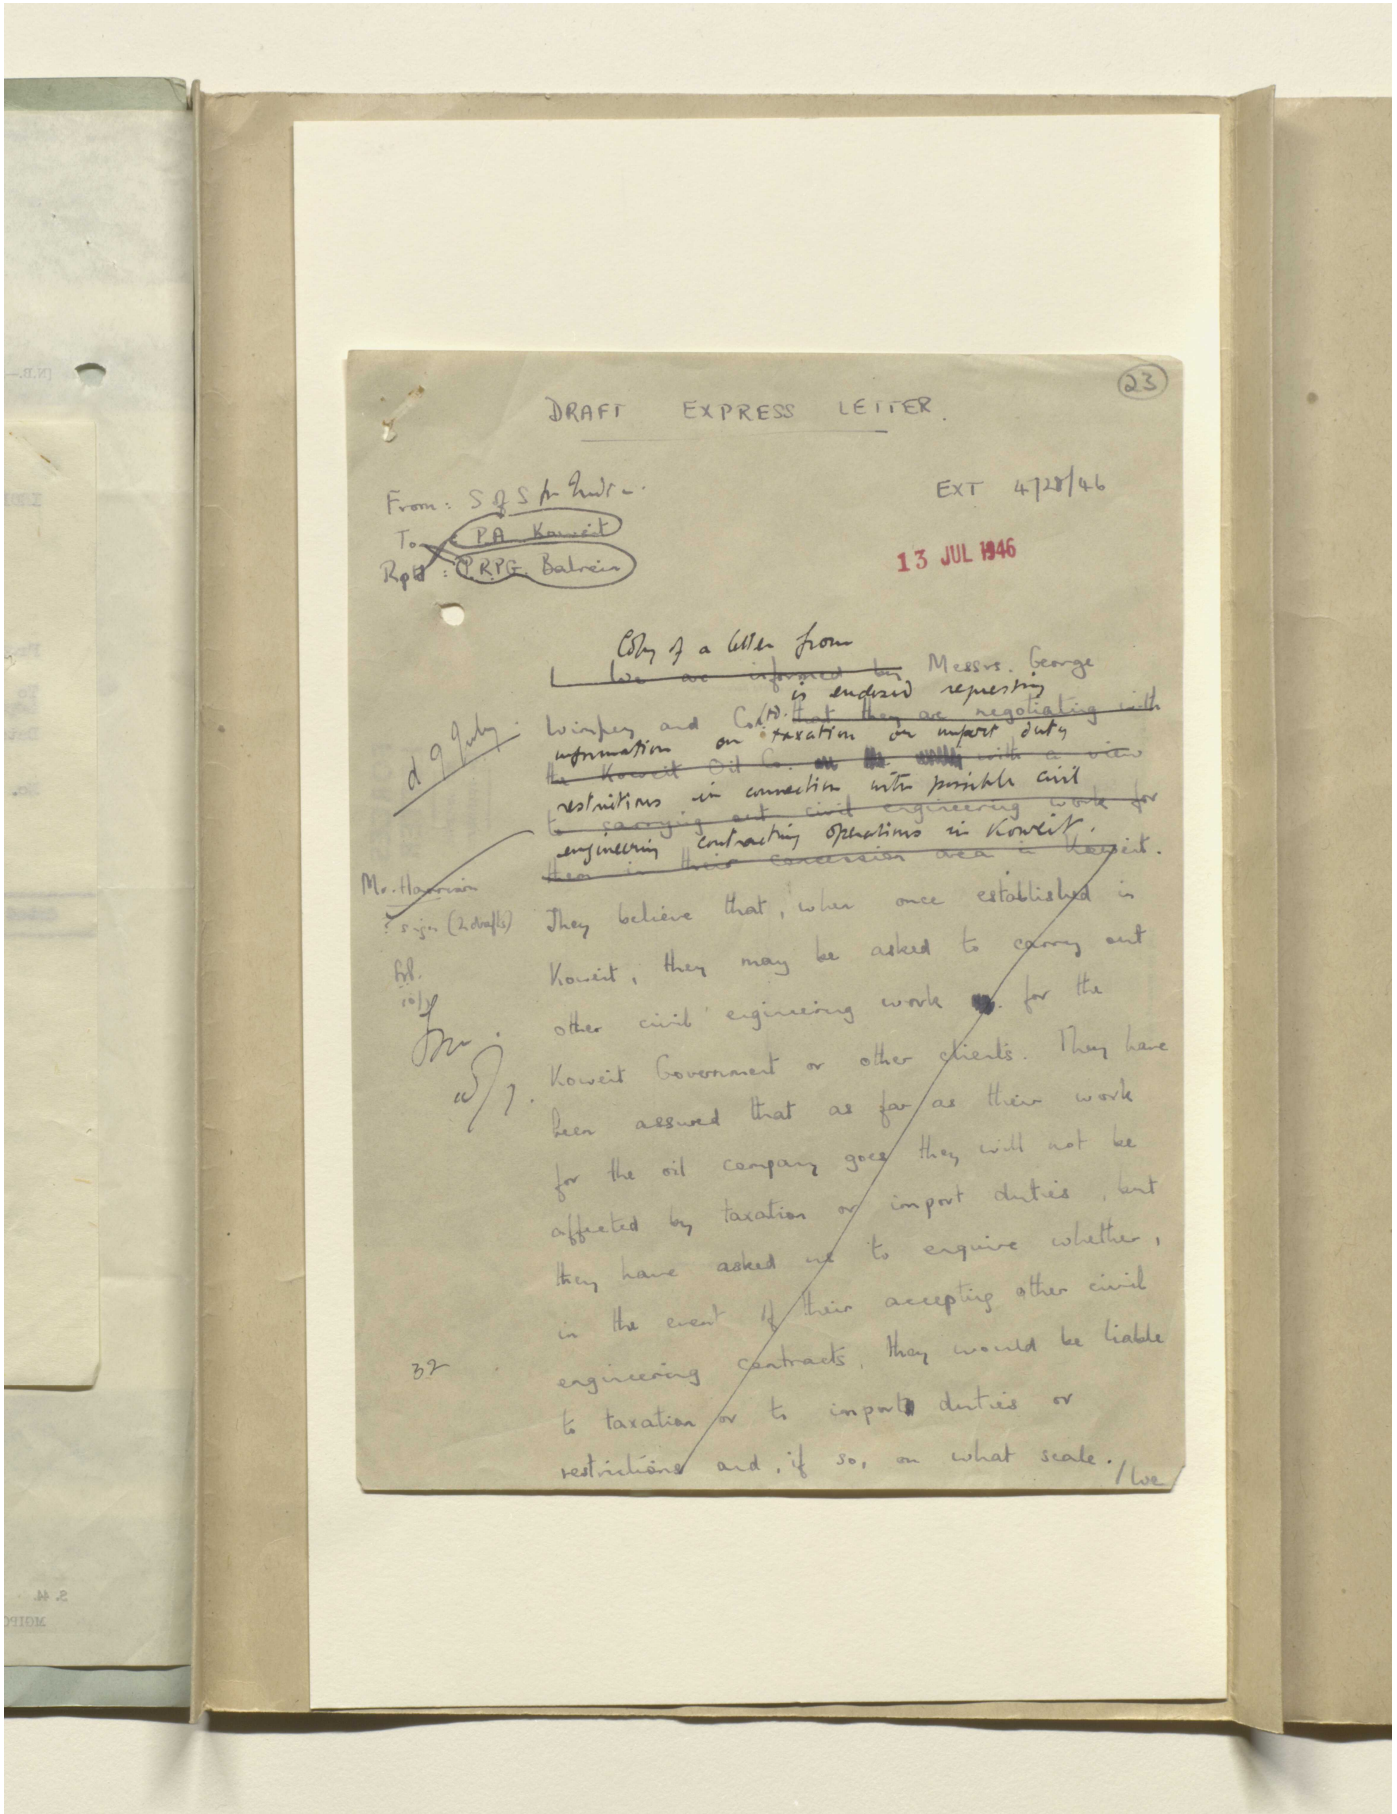 23
DRAFT EXPRESS LETTER.
From: S of S for India.
EXT 4728/46
To : P.A. Koweit
13 JUL 1946
Rptd : P.R.P.G. Bahrein
Copy of a letter from
1 We are informed by Messrs. George
is enclosed requesting
Wimpey and Co. Ltd. that they are negotiating with
d 9 July
information on taxation or import duty
the Koweit Oil Co. with a view
restrictions in connection with possible civil
to carrying out civil engineering work for
engineering contracting operations in Koweit.
them in their concession area in Koweit.
Mr. Harrison
They believe that, when once established in
? sign (2 drafts)
Koweit, they may be asked to carry out
10/7
other civil engineering work for the
Koweit Government or other clients. They have
been assured that as far as their work
for the oil company goes they will not be
affected by taxation or import duties, but
they have asked us to enquire whether,
in the event of their accepting other civil
engineering contracts, they would be liable
32
to taxation or to import duties or
restrictions and, if so, on what scale.
/We
S. 44.